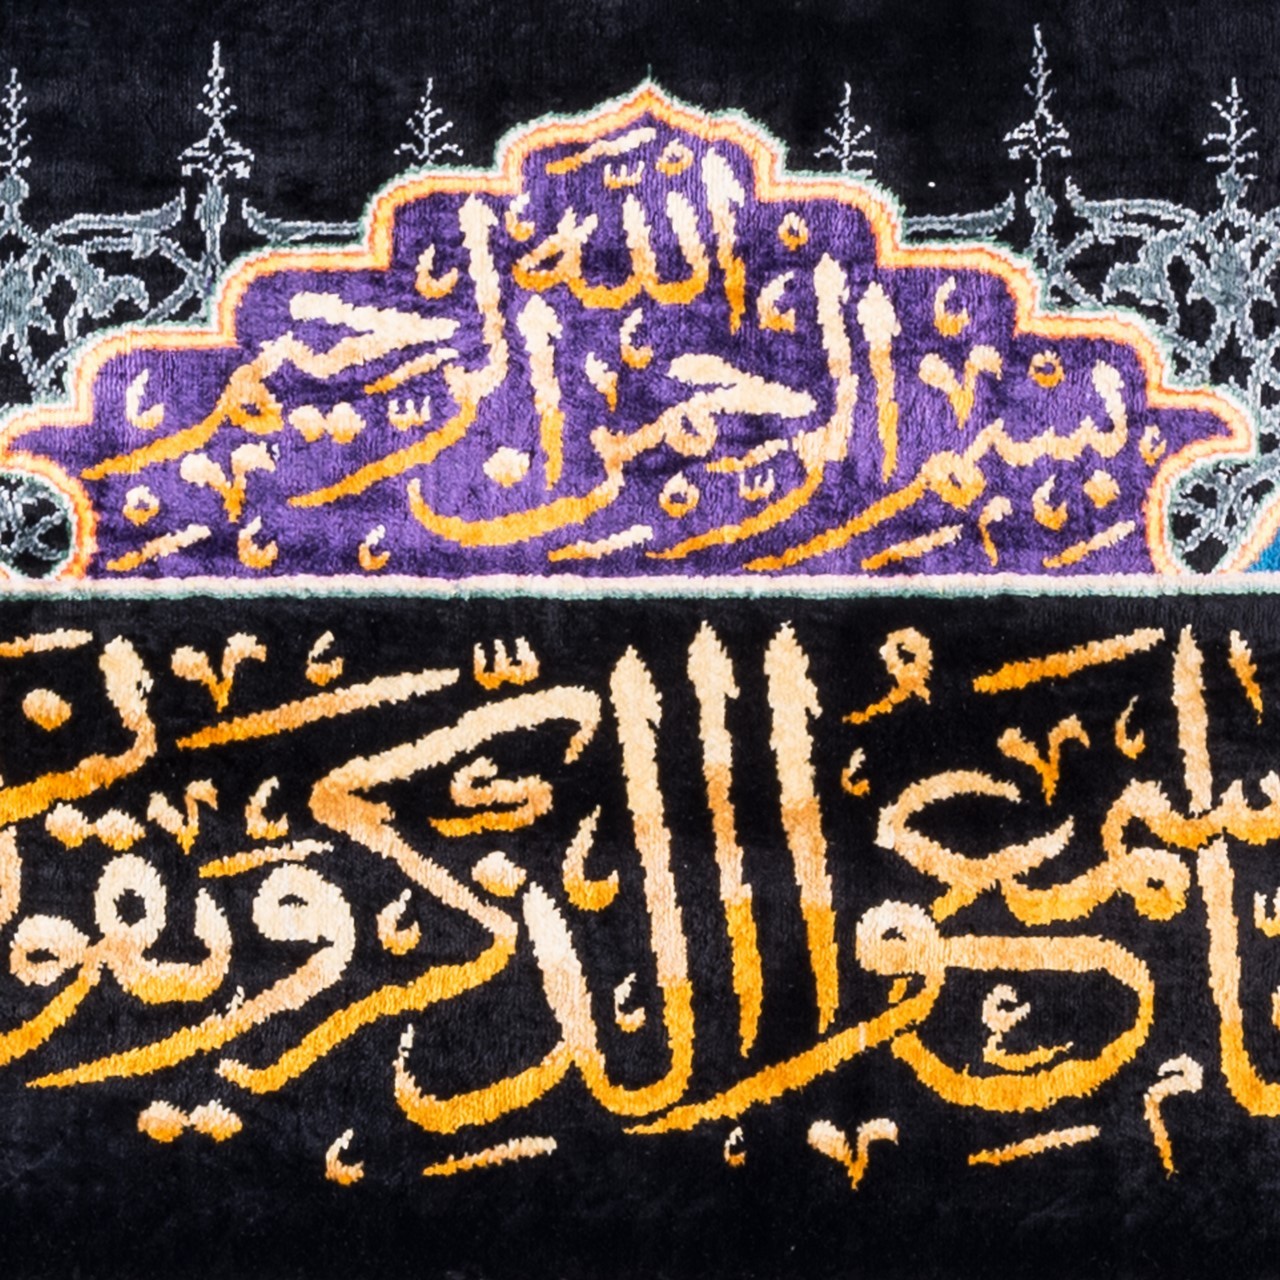 بسم الله الرحمن الرحيم
سمعوا الذكر ويقولو